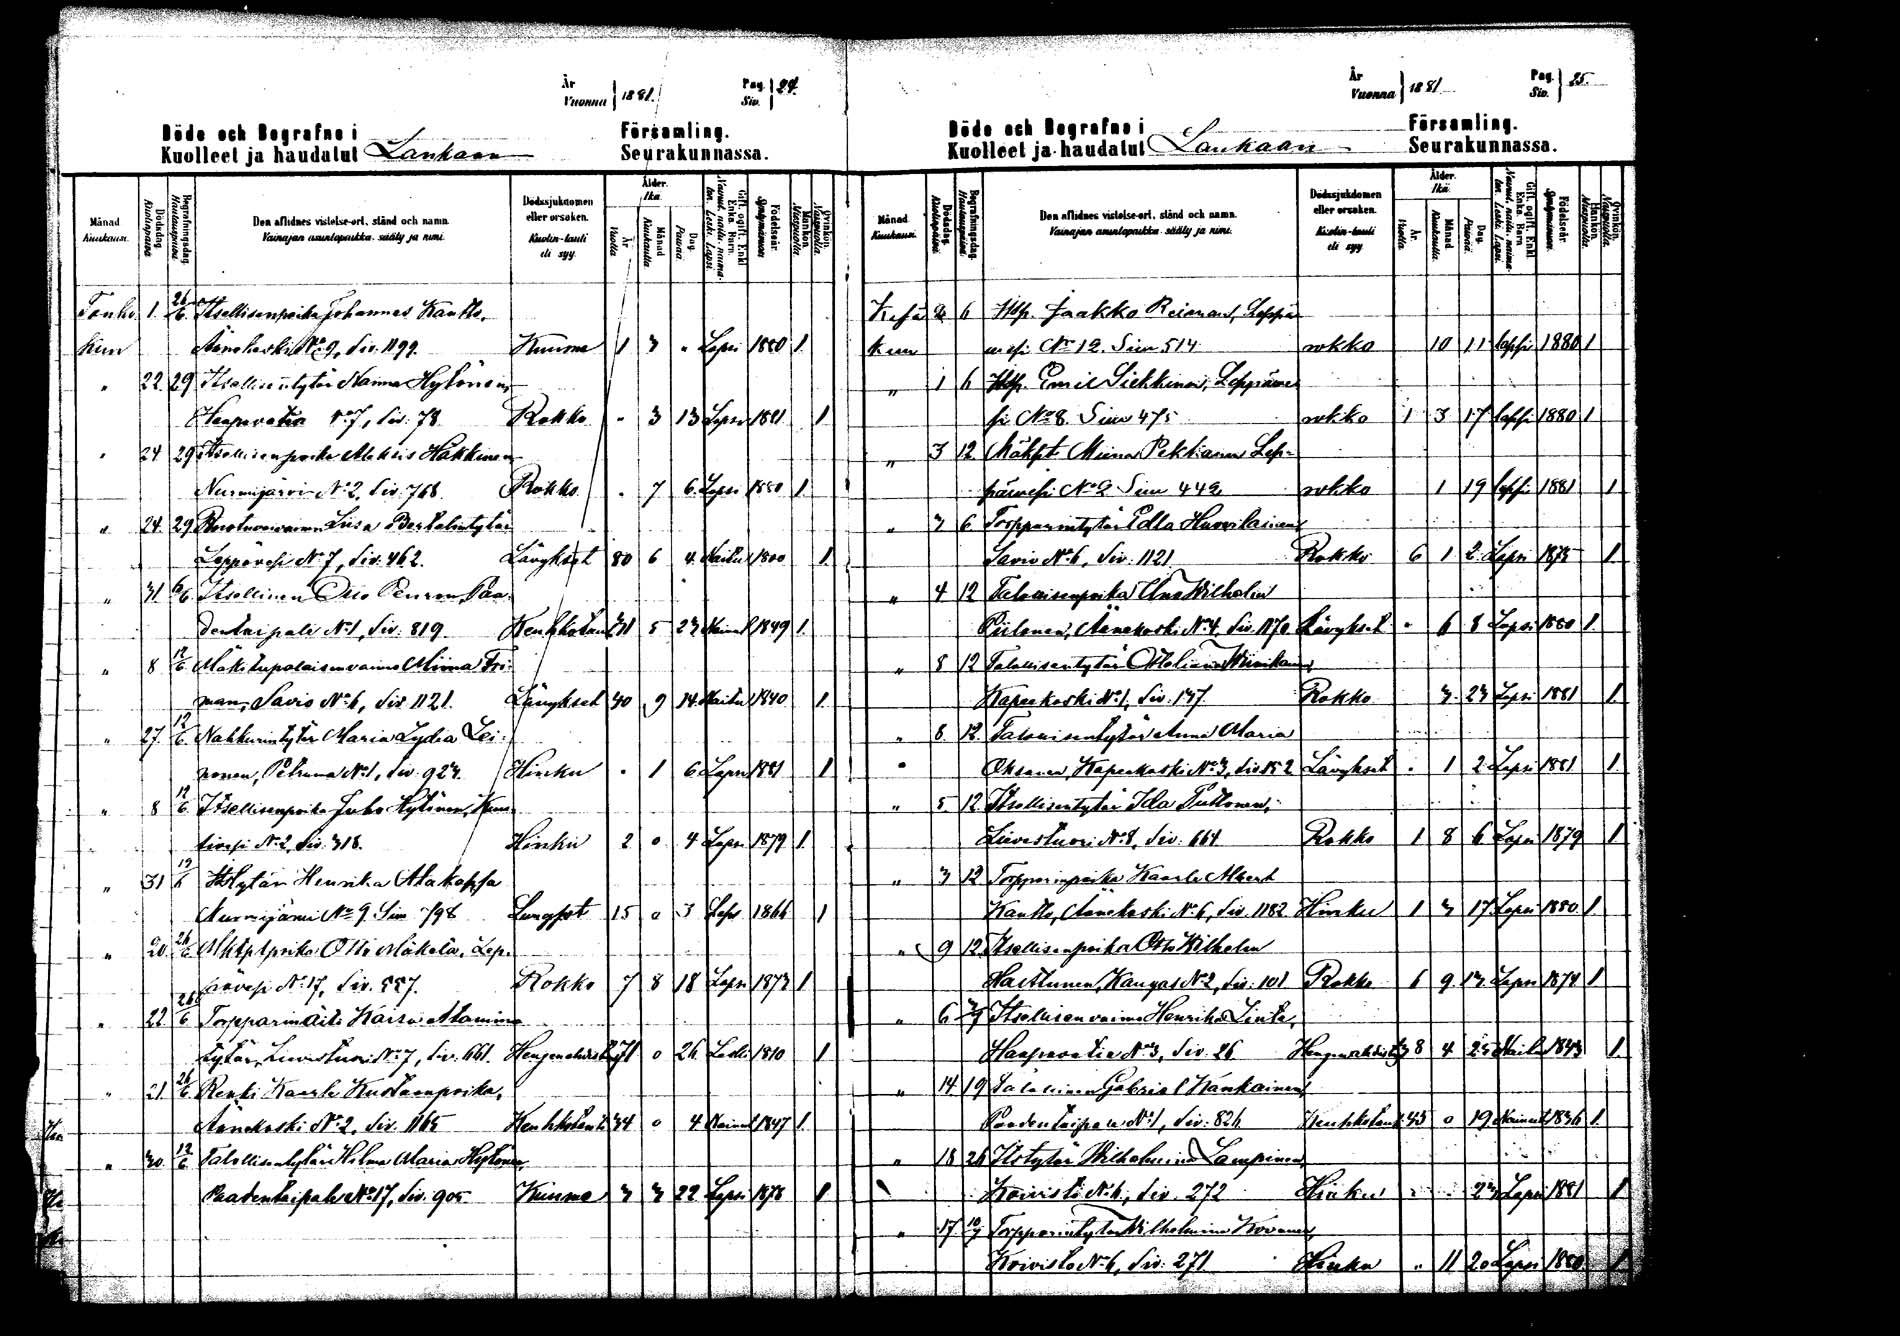 År
Vuonna 1881. Pag. Siv. 24.
Döde och Begrafne i Laukaan Församling.
Kuolleet ja haudatut Seurakunnassa.
Månad Kuukausi. Dödsdag. Kuolinpäivä Begrafningsdag. Hautauspäivä Den aflidnes vistelse-ort, stånd och namn. Vainajan asuntopaikka, sääty ja nimi. Dödssjukdomen eller orsaken. Kuolin-tauti eli syy. Ålder. Ikä. År. Vuotta Månad Kuukautta Dag. Päivää Gift, ogift, Enkl. Enka. Barn. Födelseår. Syntymävuosi Mankön. Miespuolia. Qvinkön. Naispuolia.
Touko 1. 26/6 Itsellisenpoika Johannes Kautto,
kuu Äänekoski No 9, Siv. 1199. Kuume 1 3 " Lapsi 1880 1.
" 22 29 Itsellisentytär Nanna Hytönen
Haapavatia No 7, Siv. 78 Rokko " 3 13 Lapsi 1881 1
" 24 29 Itsellisenpoika Aleksis Häkkinen
Nurmijärvi No 2, Siv. 768. Rokko " 7 6. Lapsi 1880 1
" 24. 29 Ruotuvaivainen Liisa Bertelintytär
Leppävesi No 7, Siv. 462. Lävykset 80 6 4. 1800 1.
" 31 6/6 Itsellinen Otto Penttinen, Paa-
dentaipale No 1, Siv. 819. Keuhkotauti 31 5 23 Nainut 1849 1.
" 8 12/6 Mäkitupalaisenvaimo Miina
man, Savio No 6, Siv. 1121. Lävykset 40 9 14. 1840 1.
" 27. 12/6 Nahkurintytär Maria Lydia Lei-
nonen, Petruma No 1, Siv. 923. Hinku " 1 6 Lapsi 1881 1
" 8 12/6 Itsellisenpoika Juho Hytönen, Kuu-
sivesi No 2, Siv. 318. Hinku 2 0 4 Lapsi 1879 1.
" 31 19/6 Itstytär Henrika Alakappa
Nurmijärvi No 9. Siw 798 15 0 3 Laps 1866 1
" 20. 26/6 Otto Mäkelä, Lep-
pävesi No 17, Siv. 557. Rokko 7 8 18 Lapsi 1873 1
" 22 26/6 Torpparin äiti Kaisa Adamin-
tytär, Lievestuori No 7, Siv. 661. Hengenahdist. 71 0 26 Leski 1810 1
" 21 26/6 Renki Kaarle Kustaanpoika,
Äänekoski No 2, Siv. 1165 Keuhkotauti 34 0 4 Nainut 1847 1.
" 30. 12/6 Talollisentytär Hilma Maria Hytönen,
Paadentaipale No 17, Siv. 905 Kuume 3 3 22 Lapsi 1878 1
År
Vuonna 1881 Pag. Siv. 25.
Döde och Begrafne i Laukaan Församling.
Kuolleet ja haudatut Seurakunnassa.
Månad Kuukausi. Dödsdag. Kuolinpäivä Begrafningsdag. Hautauspäivä Den aflidnes vistelse-ort, stånd och namn. Vainajan asuntopaikka, sääty ja nimi. Dödssjukdomen eller orsaken. Kuolin-tauti eli syy Ålder. Ikä. År. Vuotta Månad Kuukautta Dag. Päivää Gift, ogift, Enkl. Enka. Barn. Födelseår. Syntymävuosi Mankön. Miespuolia. Qvinkön. Naispuolia.
Kesä 2 6 Itsp. Jaakko Reiman, Leppä-
kuu wesi No 12. Siw 514 rokko 10 11 lapsi 1880 1
" 1 6 Itsp. Emil Siekkinen, Leppäwe-
si No 8. Siw 475 rokko 1 3 17 lapsi 1880 1
" 3 12. Miina Pekkanen Lep-
päwesi No 2 Siw 442 rokko 1 19 lapsi 1881 1
" 3 6 Torpparintytär Edla Huovilainen
Savio No 6, Siv. 1121 Rokko 6 1 2 Lapsi 1875 1.
" 4 12 Talollisenpoika Uno Wilhelm
Piilonen, Äänekoski No 4, Siv. 1170 Lävykset " 6 8 Lapsi 1880 1.
" 8 12 Talollisentytär
Kapeekoski No 1, Siv. 137. Rokko 3. 23 Lapsi 1881 1.
" 8. 12. Talollisentytär Anna Maria
Oksanen, Kapeekoski No 3, Siv. 152 Lävykset " 1 2 Lapsi 1881 1.
" 5 12 Itsellisentytär Ida Puttonen,
Lievestuori No 8, Siv. 664 Rokko 1 8 6 Lapsi 1879 1
" 3 12 Torpparinpoika Kaarle Albert
Kautto, Äänekoski No 6, Siv. 1182 Hinku 1 3 17 Lapsi 1880 1.
" 9 12 Itsellisenpoika Otto Wilhelm
Hartunen, Kangas No 2, Siv. 101 Rokko 6 9 13 Lapsi 1874 1.
" 6 3/7 Itsellisenvaimo Henrika Linta,
Haapavatia No 3, Siv. 26. Hengenahdist. 38 4 25 1843 1
" 14 19 Talollinen Gabriel Kankainen,
Paadentaipale No 1, Siv. 826 Keuhkotauti 45 0 19 Nainut 1836 1.
" 18 26 Itstytär Wilhelmiina Lampinen,
Koivisto No 6, Siv. 272 Hinku " " 23 Lapsi 1881 1
" 17 10/7 Torpparintytär Wilhelmiina Kovanen,
Koivisto No 6, Siv. 271 Hinku " 11 20 Lapsi 1880. 1.